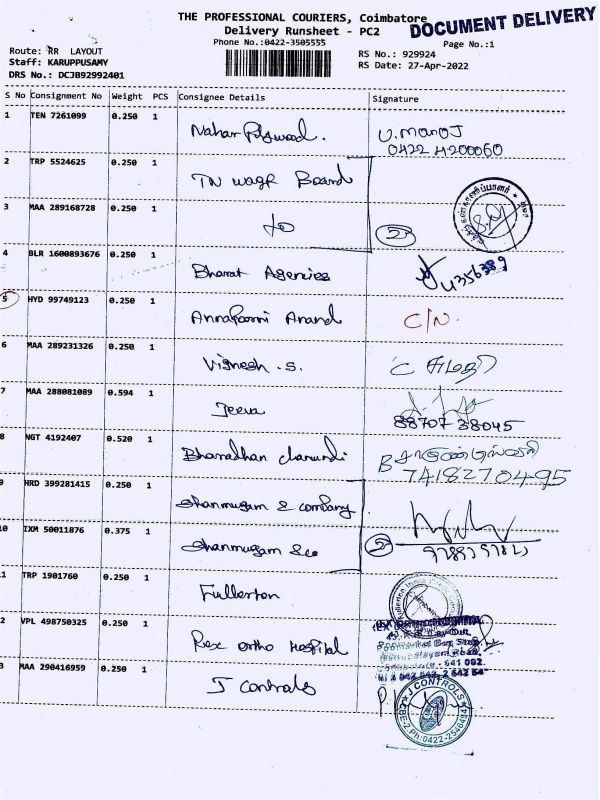 THE PROFESSIONAL COURIERS, Coimbatore
DOCUMENT DELIVERY
Delivery Runsheet - PC2
Phone No.:0422-3505555
Page No.:1
Route: RR LAYOUT
Staff: KARUPPUSAMY
DRS No.: DCJB92992401
RS No.: 929924
RS Date: 27-Apr-2022
S No Consignment No Weight PCS Consignee Details Signature
1 TEN 7261099 0.250 1 Nahar Plywood. U.Manoj
0422 4200060
2 TRP 5524625 0.250 1 TN wagf Board
3 MAA 289168728 0.250 1 2
4 BLR 1600893676 0.250 1 Bharat Agencies 4356389
5 HYD 99749123 0.250 1 Annapoorni Anand C/N.
6 MAA 289231326 0.250 1 Vignesh .S.
7 MAA 288081089 0.594 1 Jeeva
88707 38045
8 NGT 4192407 0.520 1 Bharradhan chamundi B
7418270495
9 HRD 399281415 0.250 1 Shanmugam & company
10 IXM 50011876 0.375 1 Shanmugam &co 2
1 TRP 1901760 0.250 1 Fullerton Fullerton India
2 VPL 498750325 0.250 1 Rex Ortho Hospital REX ORTHO HOSPITAL
641 002.
3 MAA 290416959 0.250 1 J Controls
J CONTROLS
CBE-2.Ph:0422-2546494